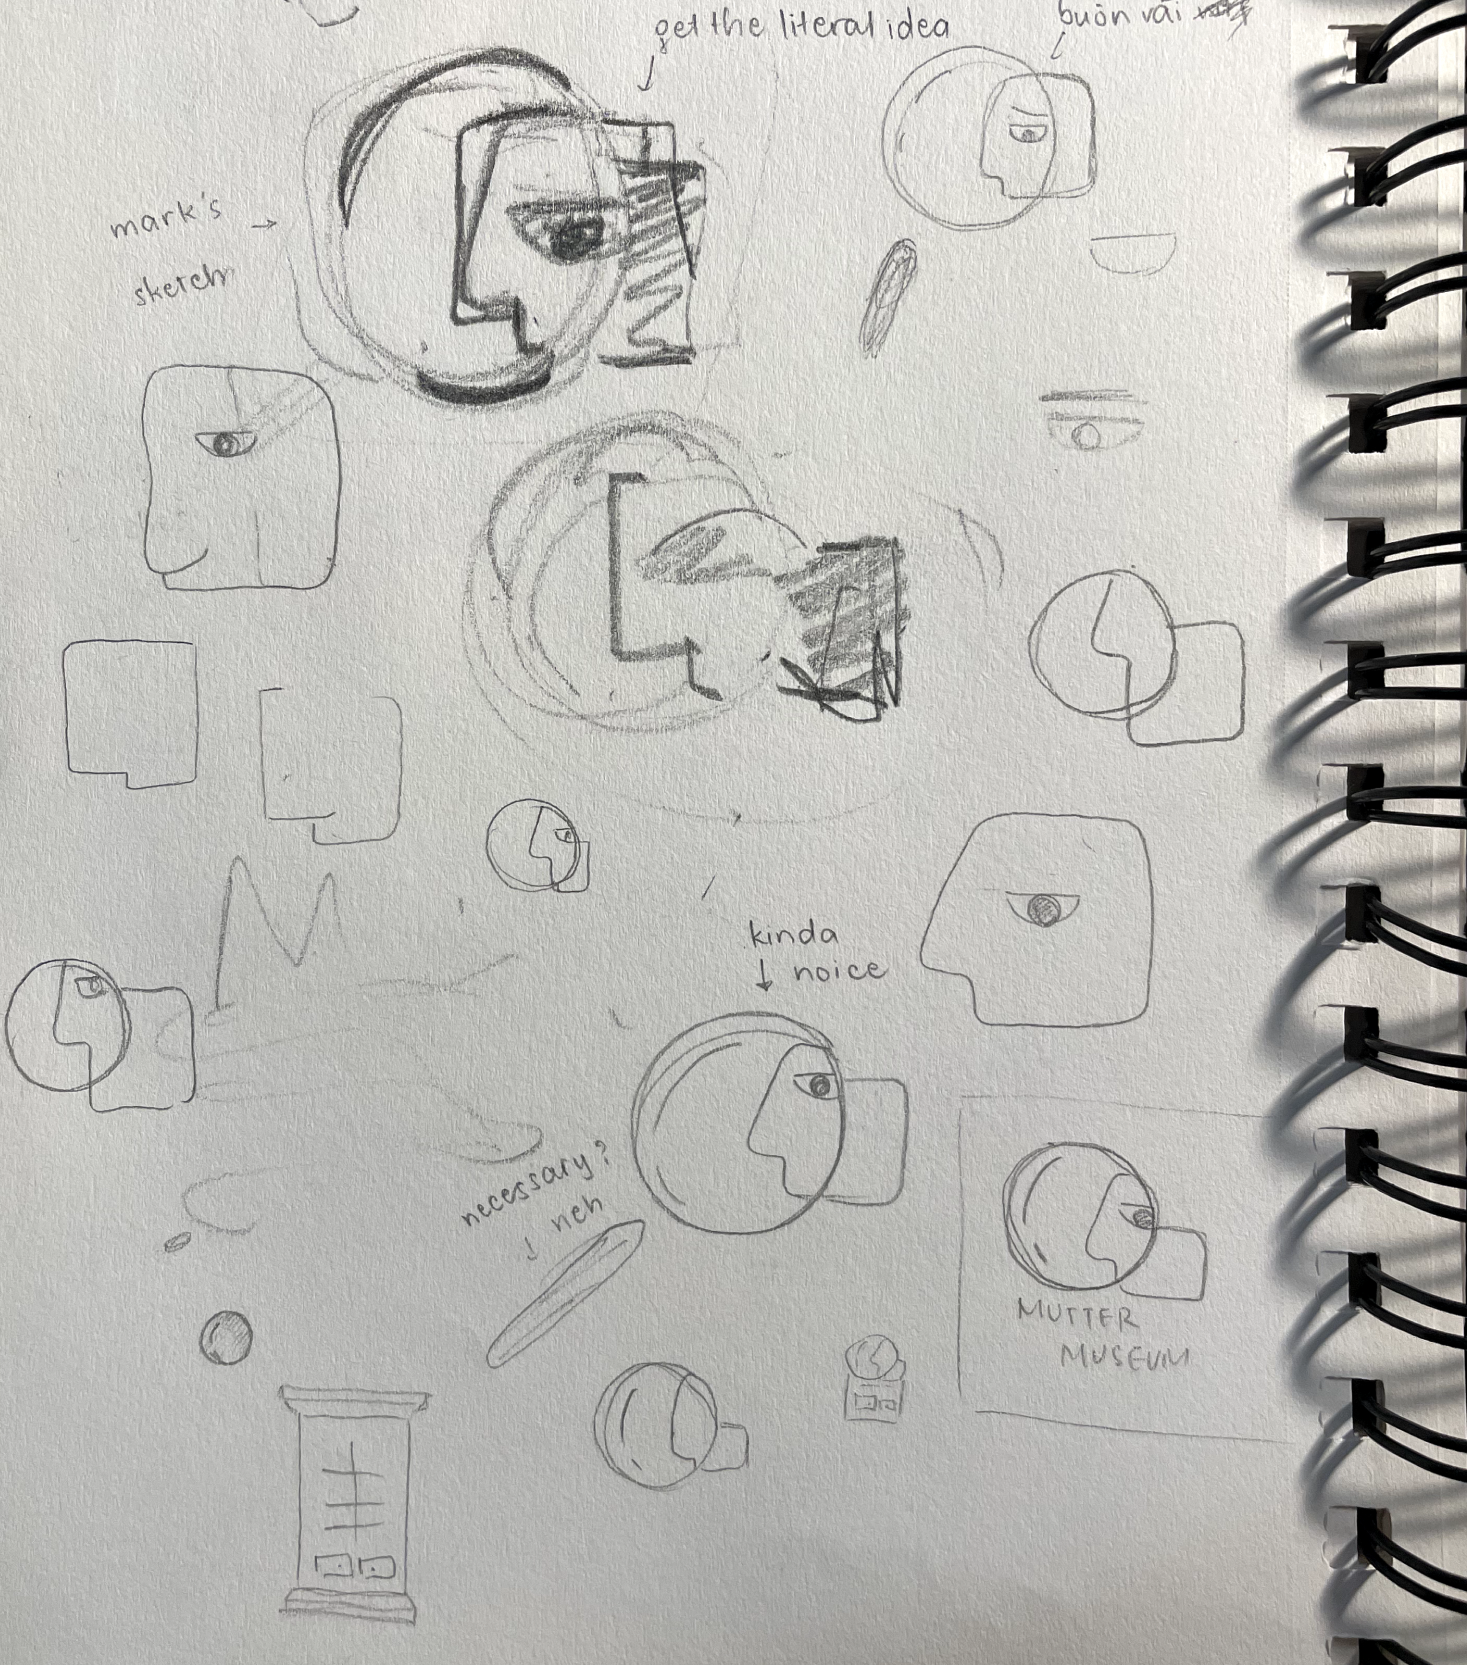 get the literal idea
buồn vãi
mark's
sketch
M
kinda
noice
necessary?
neh
MUTTER
MUSEUM